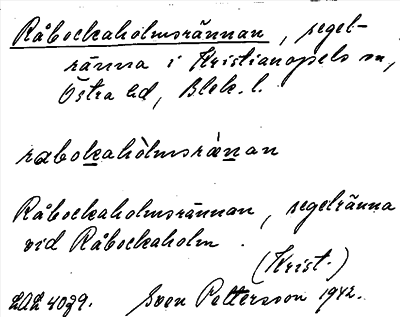 Råbockaholmsrännan, segel-
ränna i Kristianopels sn,
Östra hd, Blek. l.
rabokahòlmsrànan
Råbockaholmsrännan, segelränna
vid Råbockaholm.
(Krist.)
LAL 4029. Sven Pettersson 1942.